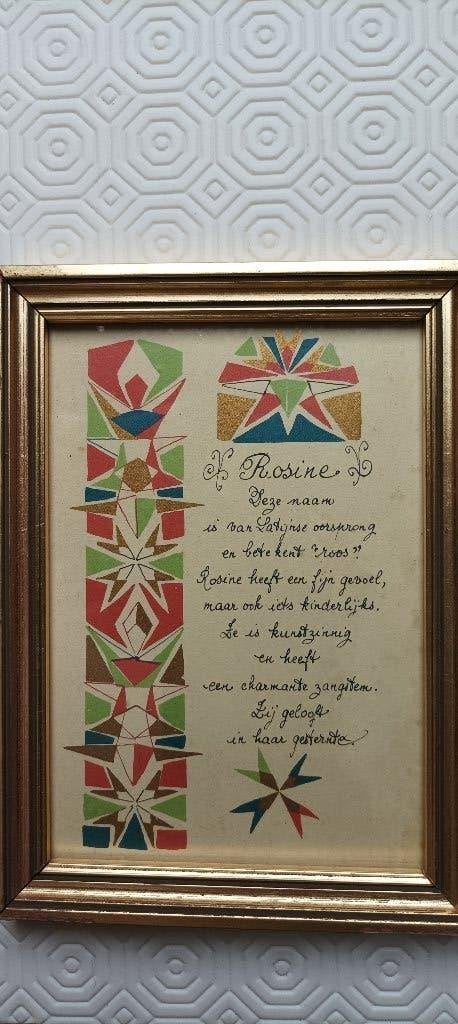 Rosine
Deze naam
is van Latijnse oorsprong
en betekent "roos".
Rosine heeft een fijn gevoel,
maar ook iets kinderlijks.
Ze is kunstzinnig
en heeft
een charmante zangstem.
Zij gelooft
in haar gesternte